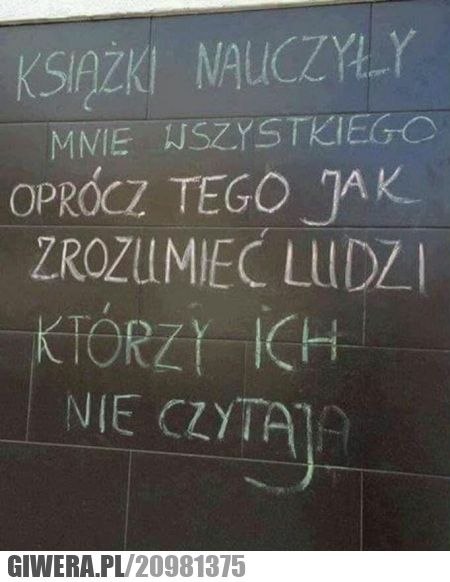 KSIĄŻKI NAUCZYŁY
MNIE WSZYSTKIEGO
OPRÓCZ TEGO JAK
ZROZUMIEĆ LUDZI
KTÓRZY ICH
NIE CZYTAJĄ
GIWERA.PL/20981375